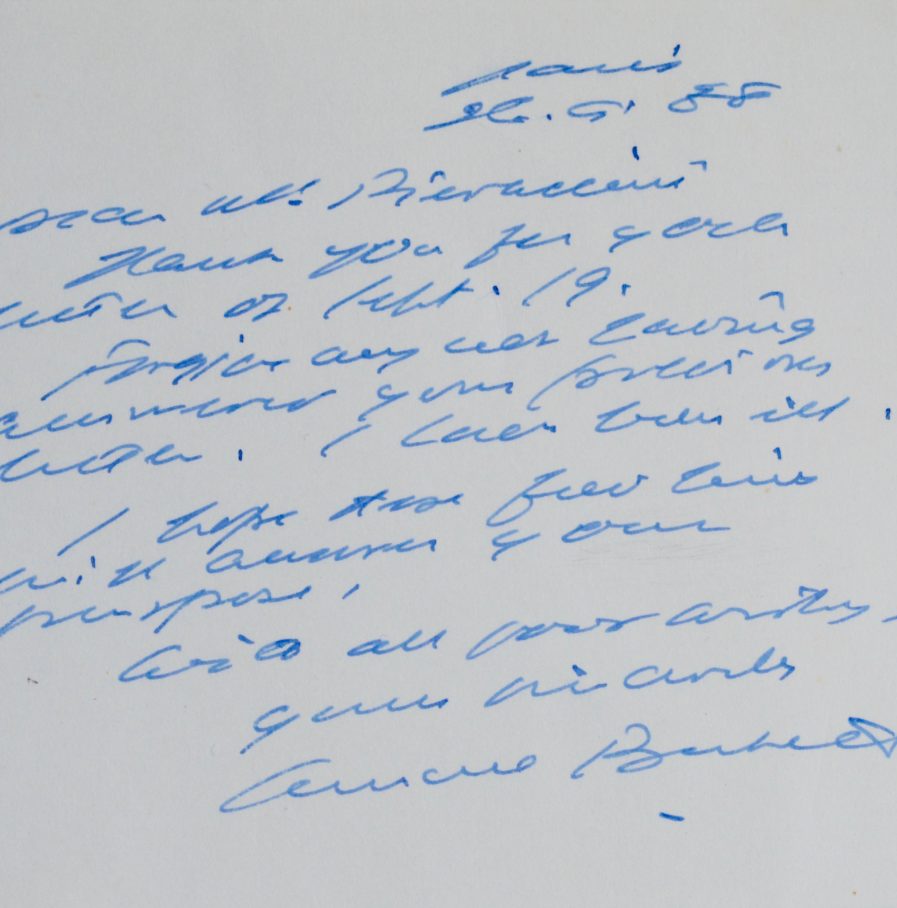 Paris
26. 9. 88
Dear Mr. Pieraccini
Thank you for your
letter of Sept. 19.
Forgive my not having
answered your previous
letter. I have been ill.
I hope these few lines
will answer your
purpose.
With all good wishes,
yours sincerely
Samuel Beckett